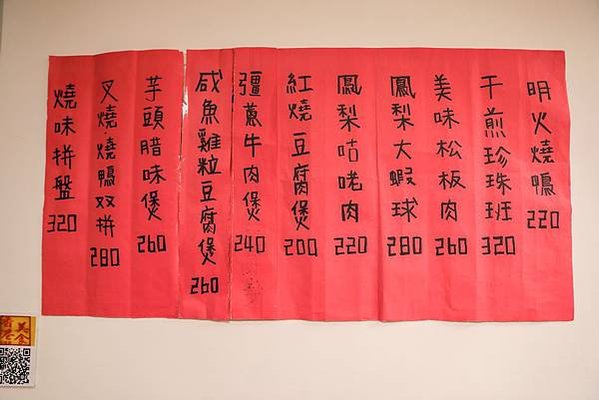 明火燒鴨 220
干煎珍珠班 320
美味松板肉 260
鳳梨大蝦球 280
鳳梨咕咾肉 220
紅燒豆腐煲 200
彊蔥牛肉煲 240
咸魚雞粒豆腐煲 260
芋頭腊味煲 260
叉燒.燒鴨双拼 280
燒味拼盤 320